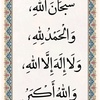 سُبْحَانَ اللهِ،
وَالْحَمْدُ لِلهِ،
وَلَا إِلٰهَ إِلَّا اللهُ،
وَاللهُ أَكْبَرُ